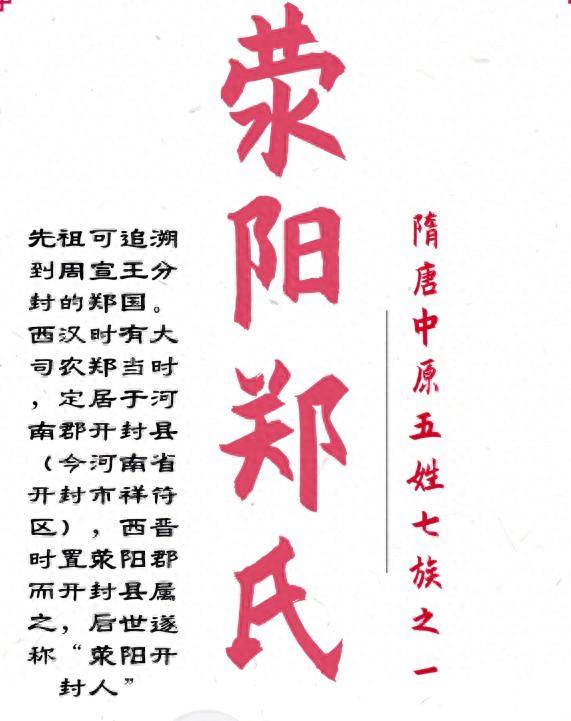 荥阳郑氏
隋唐中原五姓七族之一
先祖可追溯
到周宣王分
封的郑国。
西汉时有大
司农郑当时
，定居于河
南郡开封县
（今河南省
开封市祥符
区），西晋
时置荥阳郡
而开封县属
之，后世遂
称“荥阳开
封人”